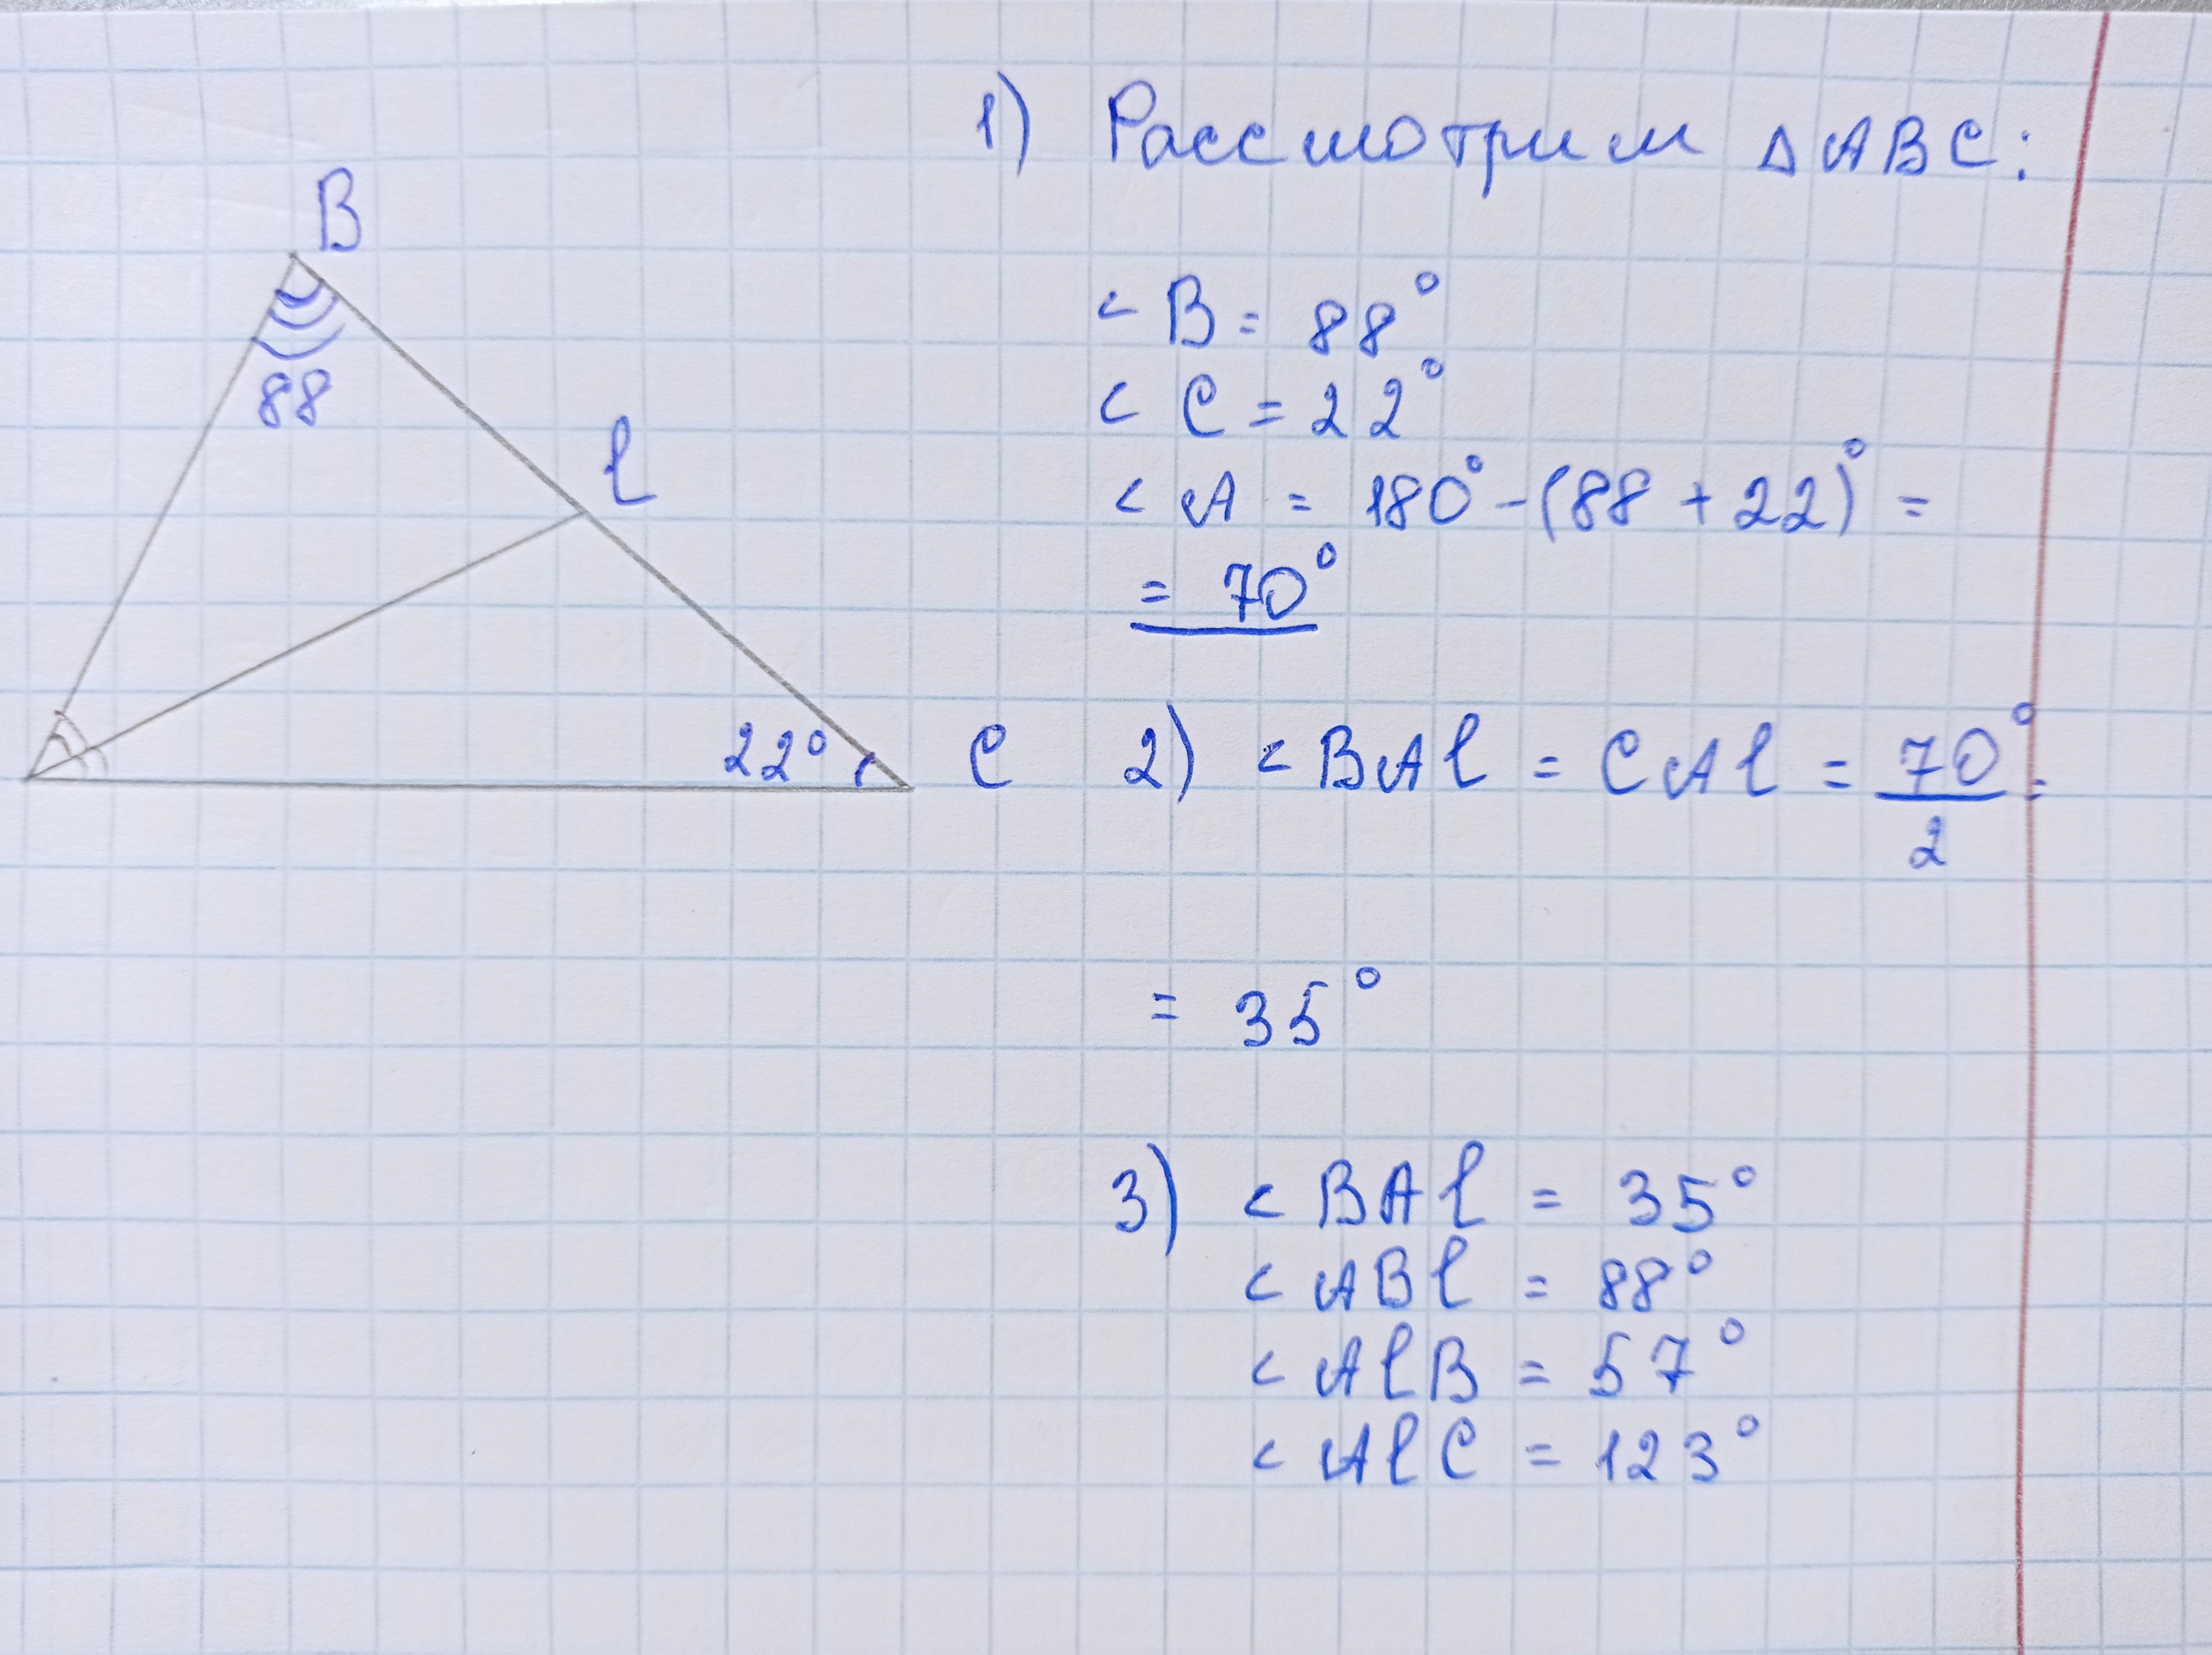 B
88
l
22°
C
1) Рассмотрим △ABC:
< B = 88°
< C = 22°
< A = 180° - (88 + 22)° =
= 70°
2) < BAl = CAl = 70° / 2 =
= 35°
3) < BAl = 35°
< ABl = 88°
< AlB = 57°
< AlC = 123°